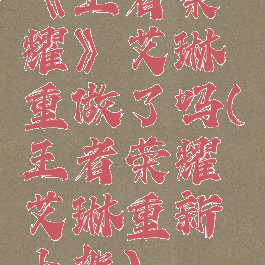 《王者荣
耀》艾琳
重做了吗(
王者荣耀
艾琳重新
上架)